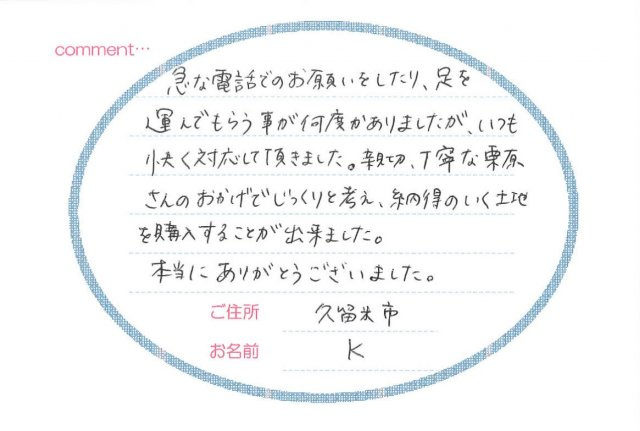 comment…
急な電話でのお願いをしたり、足を
運んでもらう事が何度かありましたが、いつも
快く対応して頂きました。親切、丁寧な栗原
さんのおかげでじっくりと考え、納得のいく土地
を購入することが出来ました。
本当にありがとうございました。
ご住所 久留米市
お名前 K